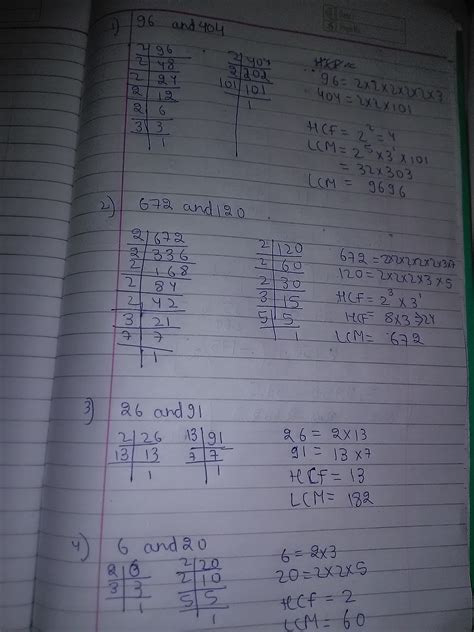 1) 96 and 404
2 | 96
2 | 48
2 | 24
2 | 12
2 | 6
3 | 3
1
2 | 404
2 | 202
101 | 101
1
96 = 2x2x2x2x2x3
404 = 2x2x101
HCF = 2² = 4
LCM = 2⁵ x 3¹ x 101
= 32x303
LCM = 9696
2) 672 and 120
2 | 672
2 | 336
2 | 168
2 | 84
2 | 42
3 | 21
7 | 7
1
2 | 120
2 | 60
2 | 30
3 | 15
5 | 5
1
120 = 2x2x2x3x5
HCF = 2³ x 3¹
HCF = 8x3=24
LCM = 672
3) 26 and 91
2 | 26
13 | 13
1
13 | 91
7 | 7
1
26 = 2x13
91 = 13x7
HCF = 13
LCM = 182
4) 6 and 20
2 | 6
3 | 3
1
2 | 20
2 | 10
5 | 5
1
6 = 2x3
20 = 2x2x5
HCF = 2
LCM = 60